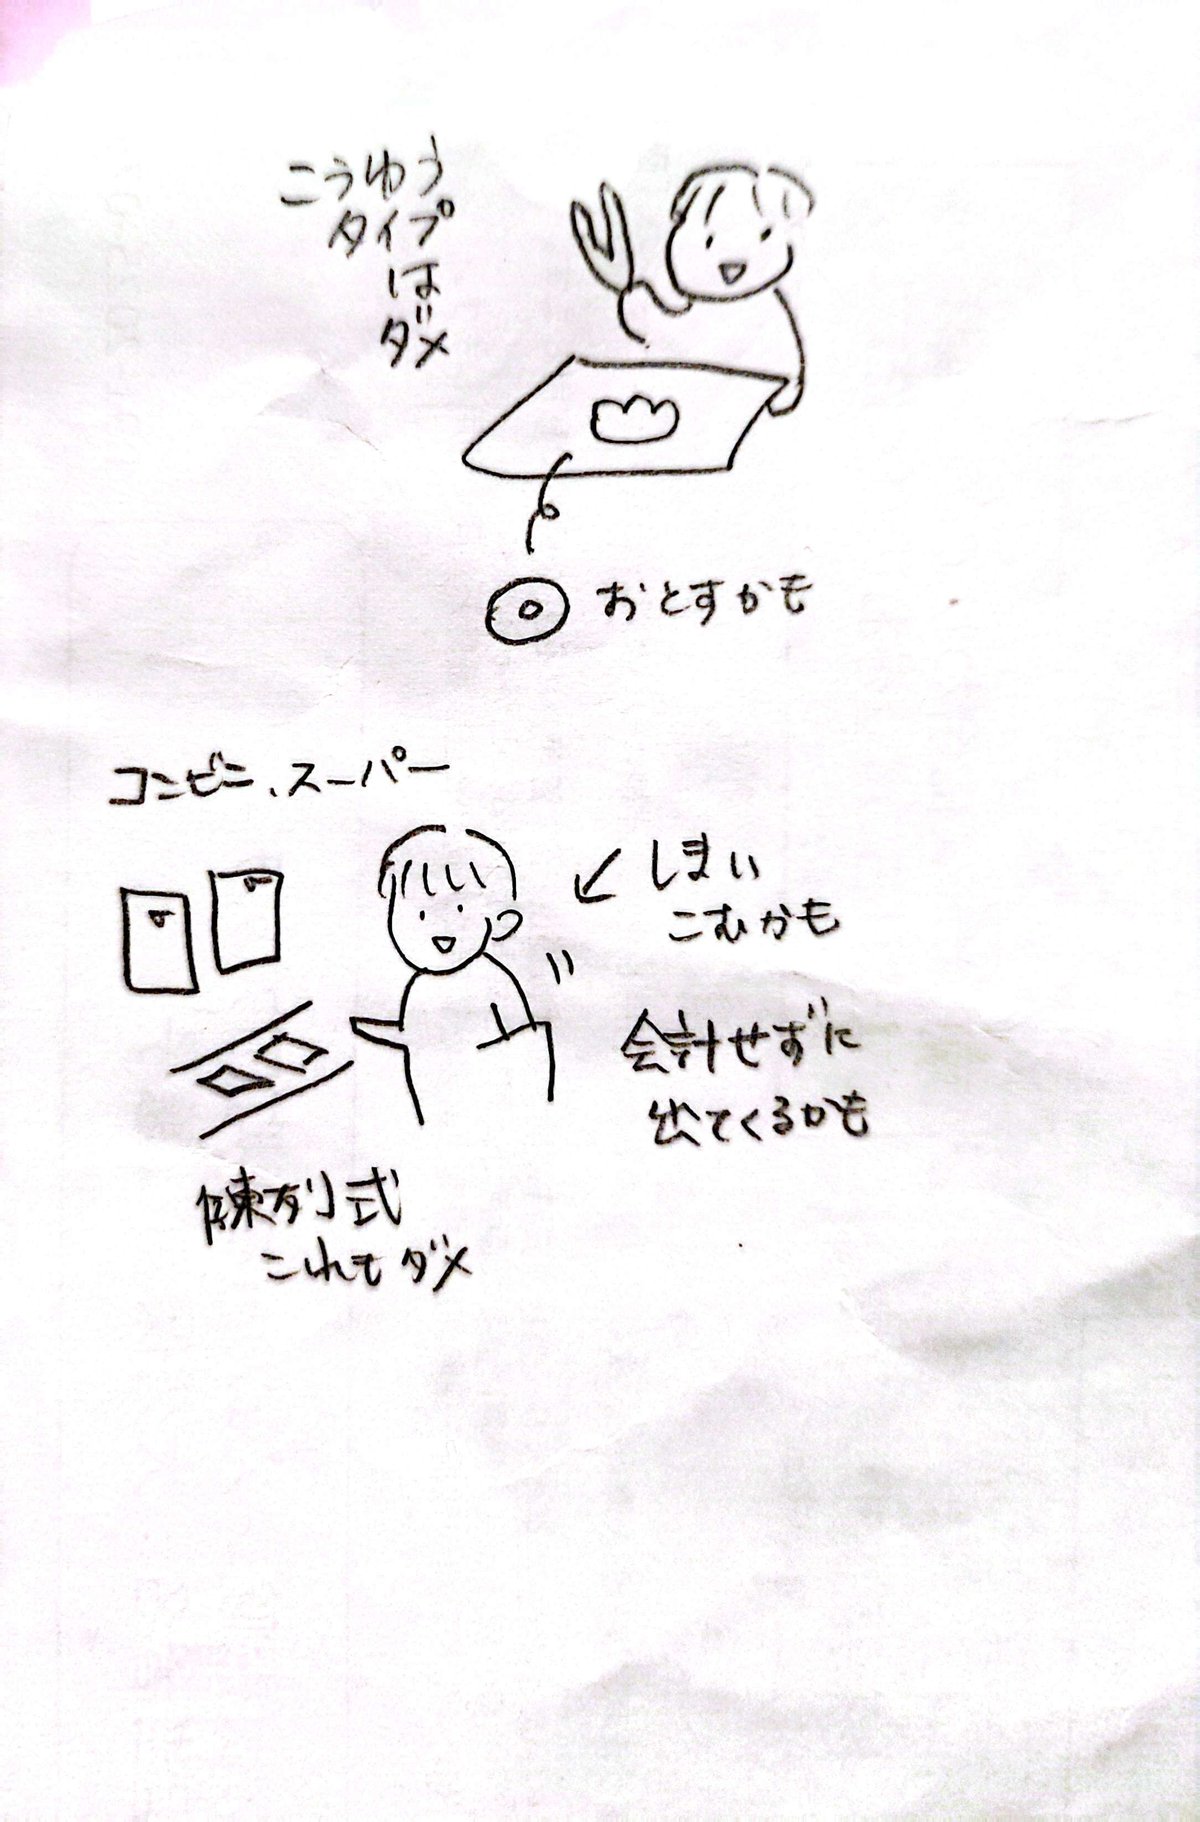 こうゆう
タイプ
は
ダメ
おとすかも
コンビニ、スーパー
しまい
こむかも
会計せずに
出てくるかも
陳列式
これもダメ